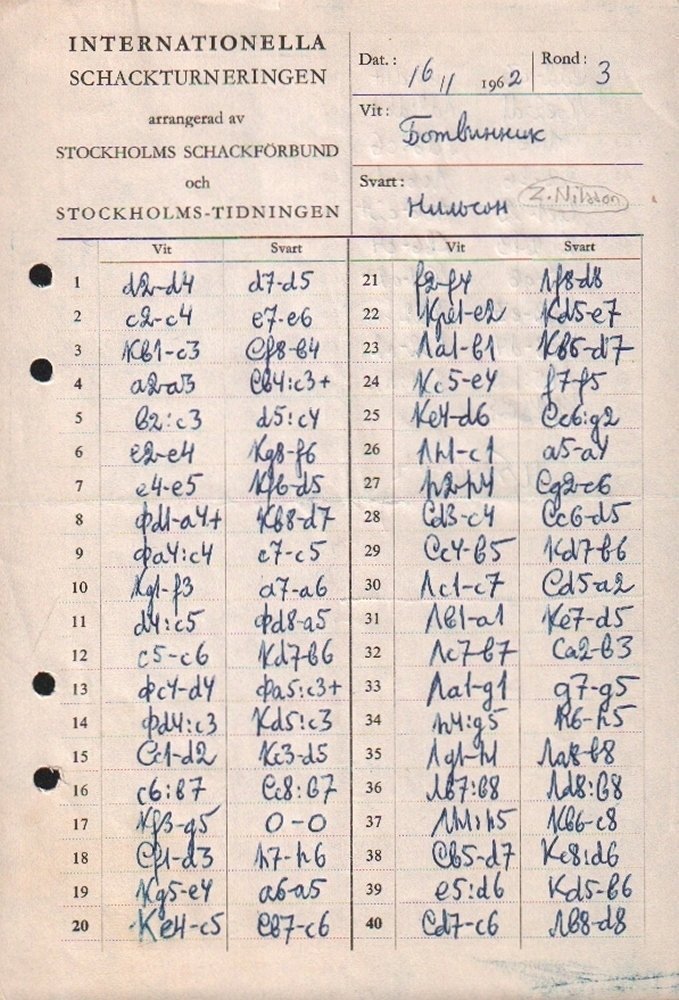 INTERNATIONELLA
SCHACKTURNERINGEN
arrangerad av
STOCKHOLMS SCHACKFÖRBUND
och
STOCKHOLMS-TIDNINGEN
Dat.: 16/11 1962 Rond: 3
Vit:
Ботвинник
Svart:
Нильсон Z. Nilsson
Vit Svart
1 d2-d4 d7-d5
2 c2-c4 e7-e6
3 Кв1-c3 Сf8-в4
4 a2-a3 Св4:c3+
5 в2:c3 d5:c4
6 e2-e4 Кg8-f6
7 e4-e5 Кf6-d5
8 Фd1-a4+ Кв8-d7
9 Фa4:c4 c7-c5
10 Кg1-f3 a7-a6
11 d4:c5 Фd8-a5
12 c5-c6 Кd7-в6
13 Фc4-d4 Фa5:c3+
14 Фd4:c3 Кd5:c3
15 Сc1-d2 Кc3-d5
16 c6:в7 Сc8:в7
17 Кf3-g5 0-0
18 Сf1-d3 h7-h6
19 Кg5-e4 a6-a5
20 Кe4-c5 Св7-c6
Vit Svart
21 f2-f4 Лf8-d8
22 Крe1-e2 Кd5-e7
23 Лa1-в1 Кв6-d7
24 Кc5-e4 f7-f5
25 Кe4-d6 Сc6:g2
26 Лh1-c1 a5-a4
27 h2-h4 Сg2-c6
28 Сd3-c4 Сc6-d5
29 Сc4-в5 Кd7-в6
30 Лc1-c7 Сd5-a2
31 Лв1-a1 Кe7-d5
32 Лc7-в7 Сa2-в3
33 Лa1-g1 g7-g5
34 h4:g5 h6-h5
35 Лg1-h1 Лa8-в8
36 Лв7:в8 Лd8:в8
37 Лh1:h5 Кв6-c8
38 Св5-d7 Кc8:d6
39 e5:d6 Кd5-в6
40 Сd7-c6 Лв8-d8